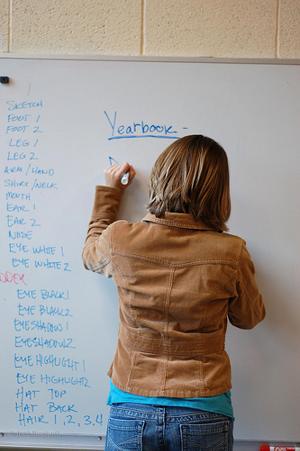 SKETCH
FOOT 1
FOOT 2
LEG 1
LEG 2
ARM/HAND
SHIRT/NECK
MOUTH
EAR 1
EAR 2
NOSE
EYE WHITE 1
EYE WHITE 2
EYE BLACK 1
EYE BLACK 2
EYESHADOW 1
EYESHADOW 2
EYE HIGHLIGHT 1
EYE HIGHLIGHT 2
HAT TOP
HAT BACK
HAIR 1, 2, 3, 4
Yearbook -